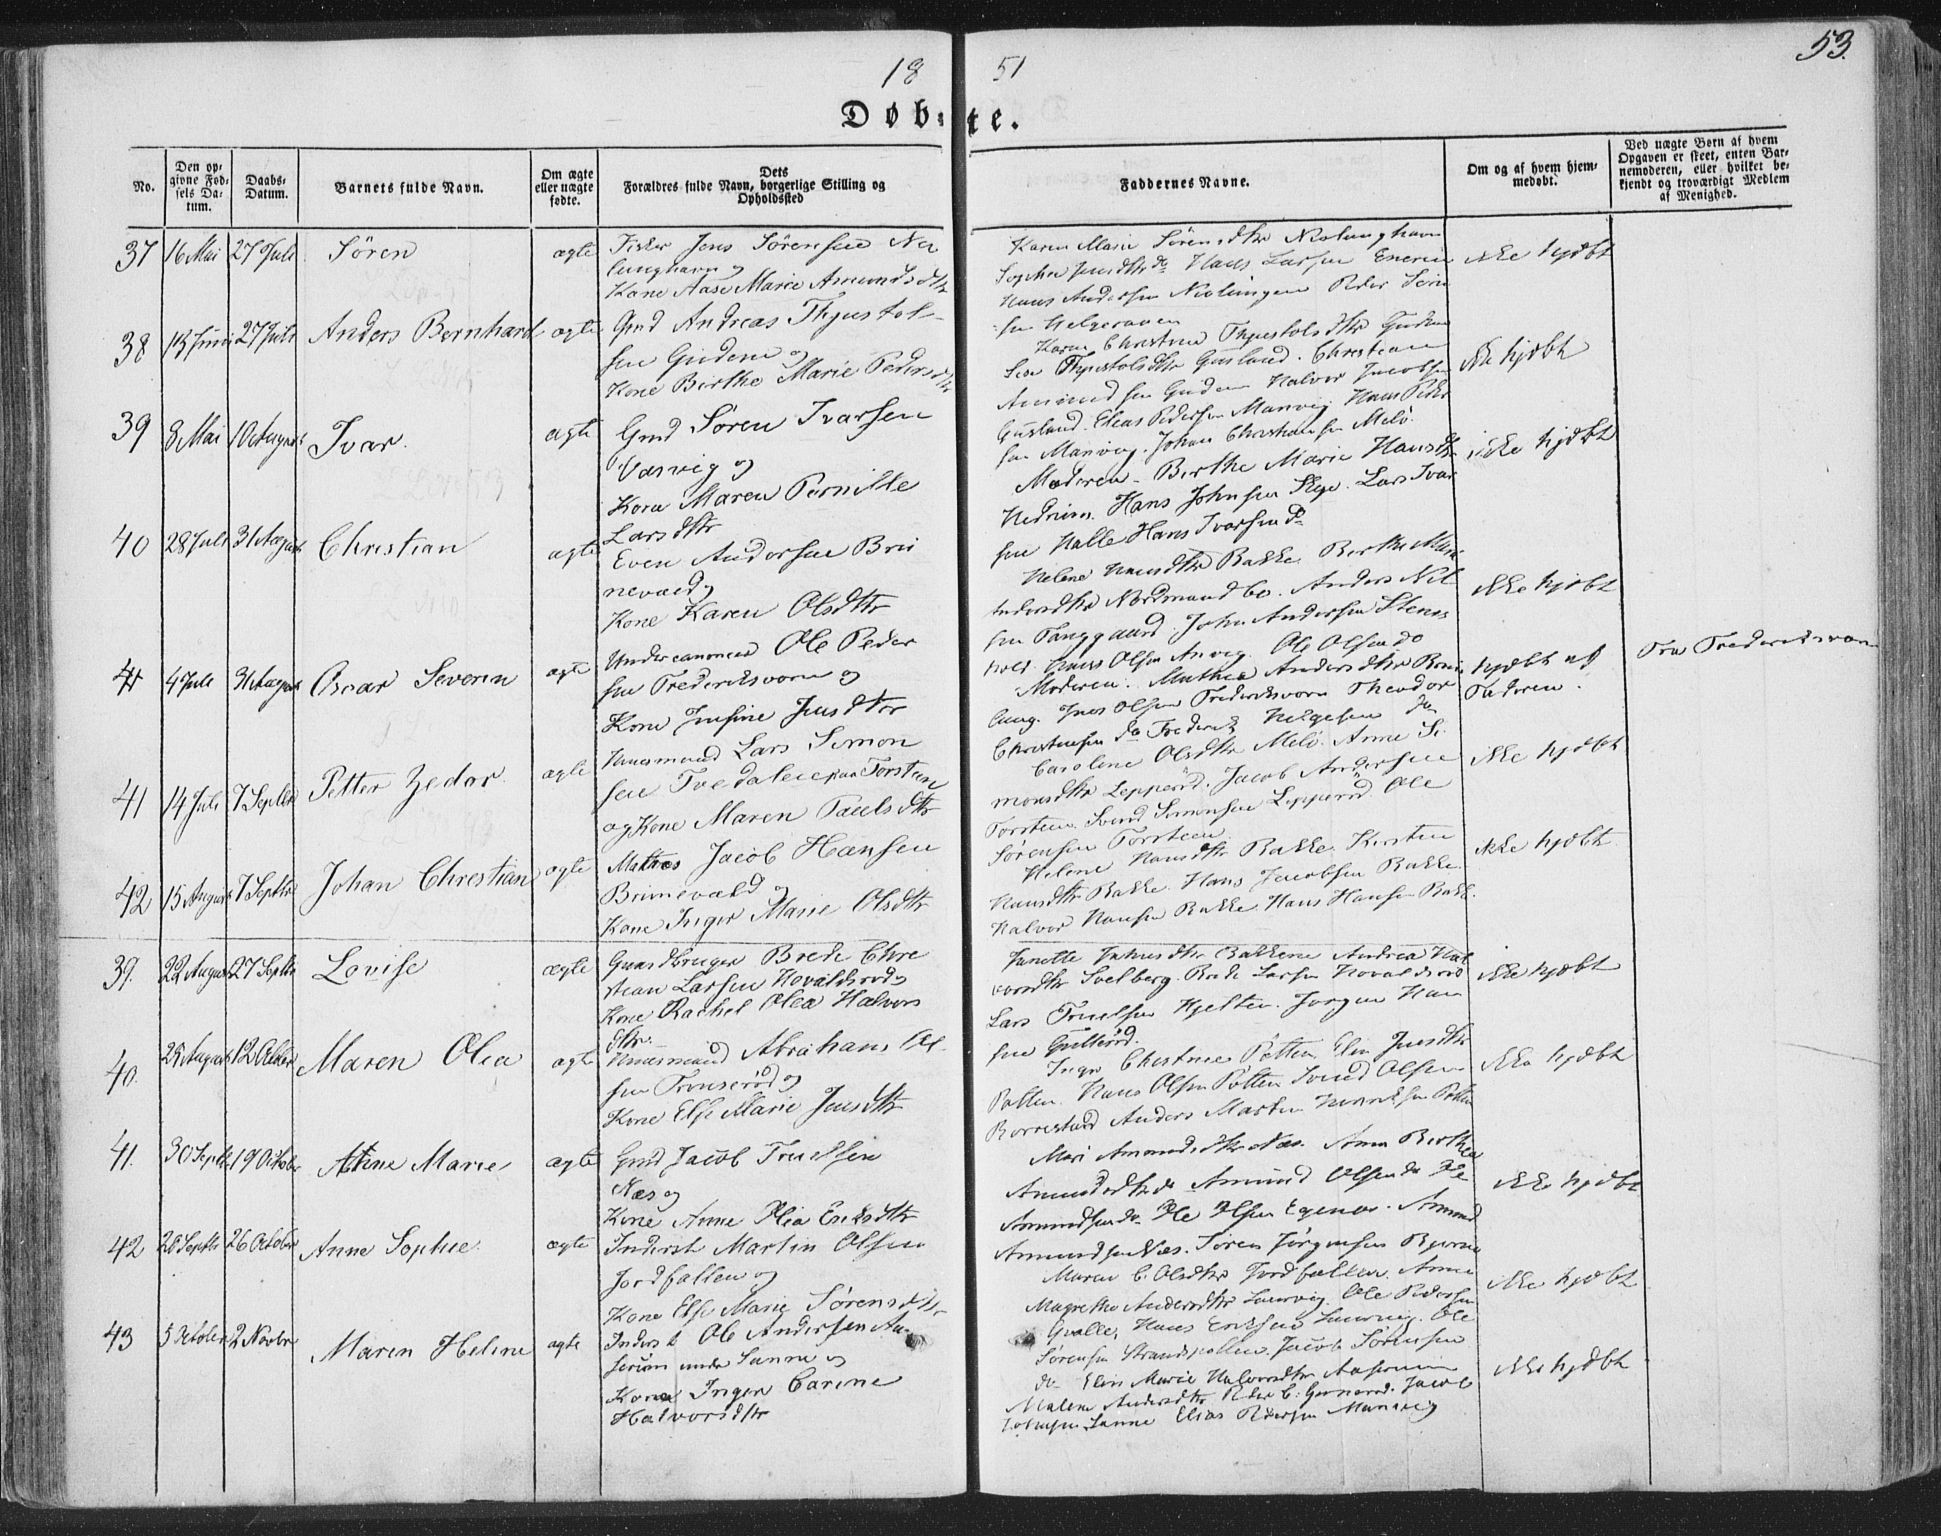 18 51
53.
Døb- te.
No.
Den opgivne Fødsels Datum.
Daabs-Datum.
Barnets fulde Navn.
Om ægte eller uægte fødte.
Dets Forældres fulde Navn, borgerlige Stilling og Opholdsted
Faddernes Navne.
Om og af hvem hjemmedøbt.
Ved uægte Børn af hvem Opgaven er skeet, enten Barnemoderen, eller hvilket bekjendt og troværdigt Medlem af Menighed.
37 16 Mai 27 Juli Søren ægte Fisker Jens Sørensen
og
Kone Aase Marie Amundsdtr
Karen Marie Sørensdtr
Sophie Jensdtr do Hans Larsen
Hans Andersen Peder Søren
sen Helgeraaen
ikke hjdbt
38 13 Juni 27 Juli Anders Bernhard ægte Gmd Andreas Thjostol-
sen Gudem og
Kone Birthe Marie Pedersdtr
Karen Christine Thjostolsdtr Gudem
Thjostolsdtr Gusland. Christian
Amundsen Gudem Halvor Jacobsen
Gusland. Elias Pedersen Manvig Hans Peder
sen Manvig. Johan Christiansen Melø.
ikke hjdbt
39 8 Mai 10 August Ivar. ægte Gmd Søren Ivarsen
Vasvig og
Kone Maren Pernille
Larsdtr
Moderen. Birthe Marie Hansdtr
Hans Johnsen Lars Ivar
sen Halle Hans Ivarsen do
ikke hjdbt
40 28 Juli 31 August Christian ægte Even Andersen Brun
nevald og
Kone Karen Olsdtr
Helene Hansdtr Bakke. Birthe Marie
Andersdtr Anders Nil
sen Fanggaard. John Andersen
Hans Olsen Anvig. Ole Olsen do
ikke hjdbt
41 4 Juli 31 August Oscar Severin ægte Undercanoneer Ole Peder
sen Frederiksværn og
Kone Jensine Jensdtr
Moderen. Mathea Andersdtr
Jens Olsen Frederiksværn Theodor
Christensen do Frederik Helgesen do
hjdbt af
Faderen.
Fra Frederiksværn
41 14 Juli 7 Septbr Petter Zedar ægte Huusmand Lars Simon
sen Tvedalen paa Torsteen
og Kone Maren Paulsdtr
Caroline Olsdtr Melø. Anne Si
monsdtr Lepperød. Jacob Andersen
Torsteen. Svend Simonsen Lepperød Ole
Sørensen Torsteen
ikke hjdbt
42 15 August 7 Septbr Johan Christian ægte Matros Jacob Hansen
Brunevald og
Kone Inger Marie Olsdtr
Helene Hansdtr Bakke. Kirsten
Hansdtr Bakke. Hans Jacobsen Bakke.
Halvor Hansen Bakke. Hans Hansen Bakk.
ikke hjdbt
39. 22 August 27 Septbr Lovise ægte Gaardbruger Brede Chre
stian Larsen Hovaldsrød og
Kone Rachel Olea Halvors
dtr.
Janette Bakkene Andrea Hal
vorsdtr Solberg. Brede Larsen Hovaldsrød
Lars Truelsen Hjelten. Jørgen Han
sen
ikke hjdbt
40. 25 August 12 Octbr Maren Olea ægte Huusmand Abraham Ol-
sen og
Kone Else Marie Jensdtr
Inger Christine Potten Elen Jensdtr
Potten. Hans Olsen Potten Svend Olsen
Anders Martin Henriksen Potten
ikke hjdbt
41. 30 Septbr 19 Octobr Anne Marie ægte Gmd Jacob Truelsen
Næs og
Kone Anne Olia Eriksdtr
Mari Amundsdtr Næs. Anne Berthea
Amundsdtr do Amund Olsen do Ole
Amundsen do Ole Olsen Egenæs. Amund
Amundsen Næs. Søren Jørgensen
ikke hjdbt
42 20 Septbr 26 Octobr Anne Sophie ægte Inderst Martin Olsen
Jordfallen og
Kone Else Marie Sørensdtr
Maren C. Olsdtr Jordfallen. Anne
Magrethe Andersdtr Laurvig. Ole Pedersen
Hans Eriksen Laurvig. Ole
Sørensen Jacob Sørensen
do
ikke hjdbt
43 5 October 2 Novbr Maren Helene ægte Inderst Ole Andersen Aa-
serum under Sanne og
Kone Inger Carine
Halvorsdtr
Elen Marie Halvorsdtr Aaserum
Malene Andersdtr Peder C. Jacob
Sanne Elias Pedersen Manvig
ikke hjdbt